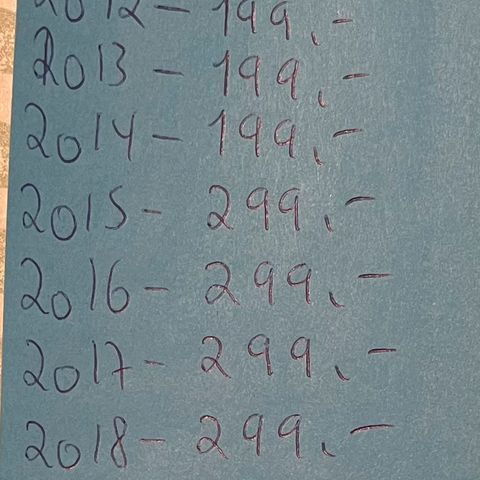 2012 - 199,-
2013 - 199,-
2014 - 199,-
2015 - 299,-
2016 - 299,-
2017 - 299,-
2018 - 299,-